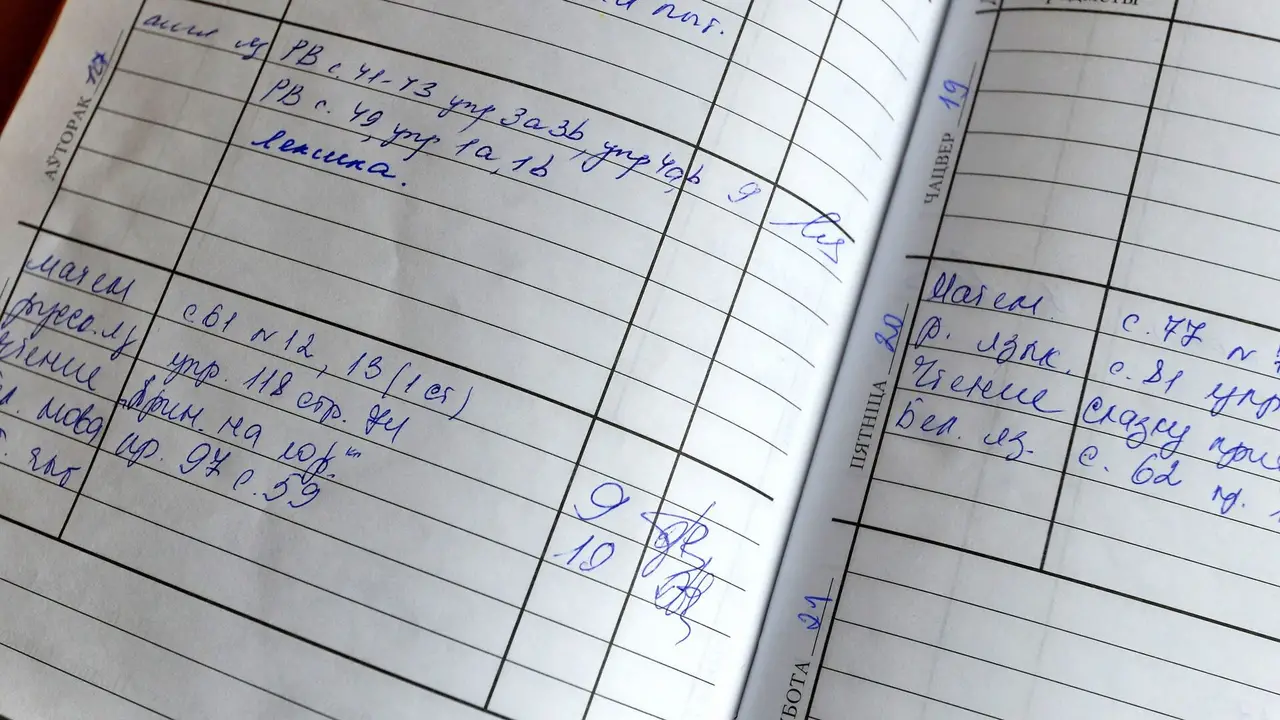 пыт.
АУТОРАК 17
англ яз
РВ с. 41-43 упр 3а3b, упр 4а,b 9
РВ с. 49, упр 1а, 1b
Лексика.
Матем с. 61 N 12, 13 (1 ст)
русс. яз упр. 118 стр. 71
чтение "Прин. на гор." 9
мова пр. 97 с. 59 10
ПРАДМЕТЫ
ЧАЦВЕР 19
ПЯТНІЦА 20
Матем. с. 77 N
Р. язык. с. 81 упр
Чтение Сказку
Бел. яз. с. 62 пр.
СУБОТА 21